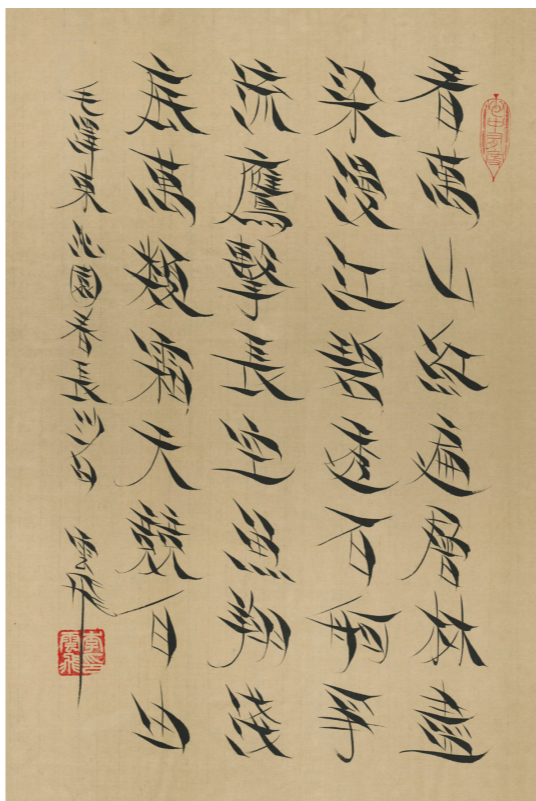 看萬山紅遍層林盡
染漫江碧透百舸爭
流鷹擊長空魚翔淺
底萬類霜天競自由
毛澤東沁園春長沙句 雲飛
李印雲飛